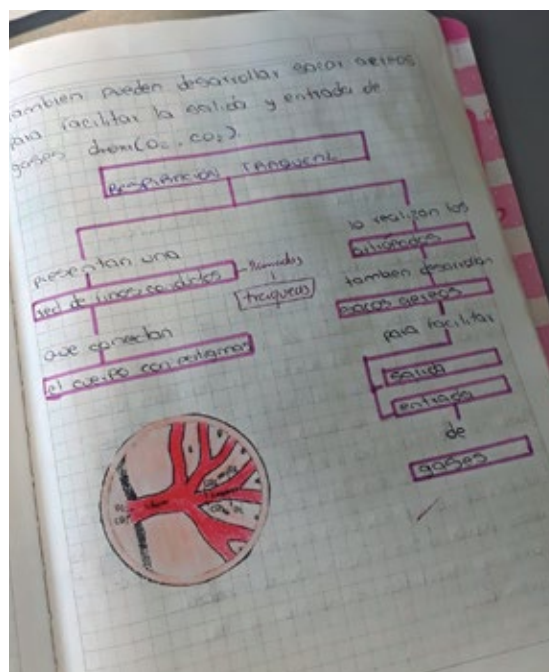 también pueden desarrollar sacos aereos
para facilitar la salida y entrada de
gases (O₂, CO₂).
RESPIRACIÓN TRAQUEAL
presentan una
red de finos conductos
llamados
traqueas
que conectan
el cuerpo con
lo realizan los
también desarrollan
sacos aereos
para facilitar
salida
entrada
de
gases